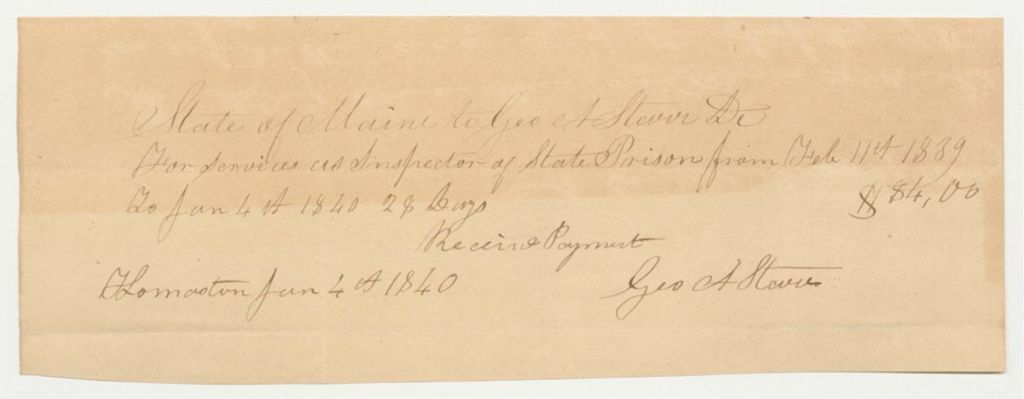 State of Maine to Geo A Starr Dr
For services as Inspector of State Prison from Feb 11th 1839
To Jan 4th 1840 28 Days $84,00
Receivd Payment
Thomaston Jan 4th 1840 Geo A Starr